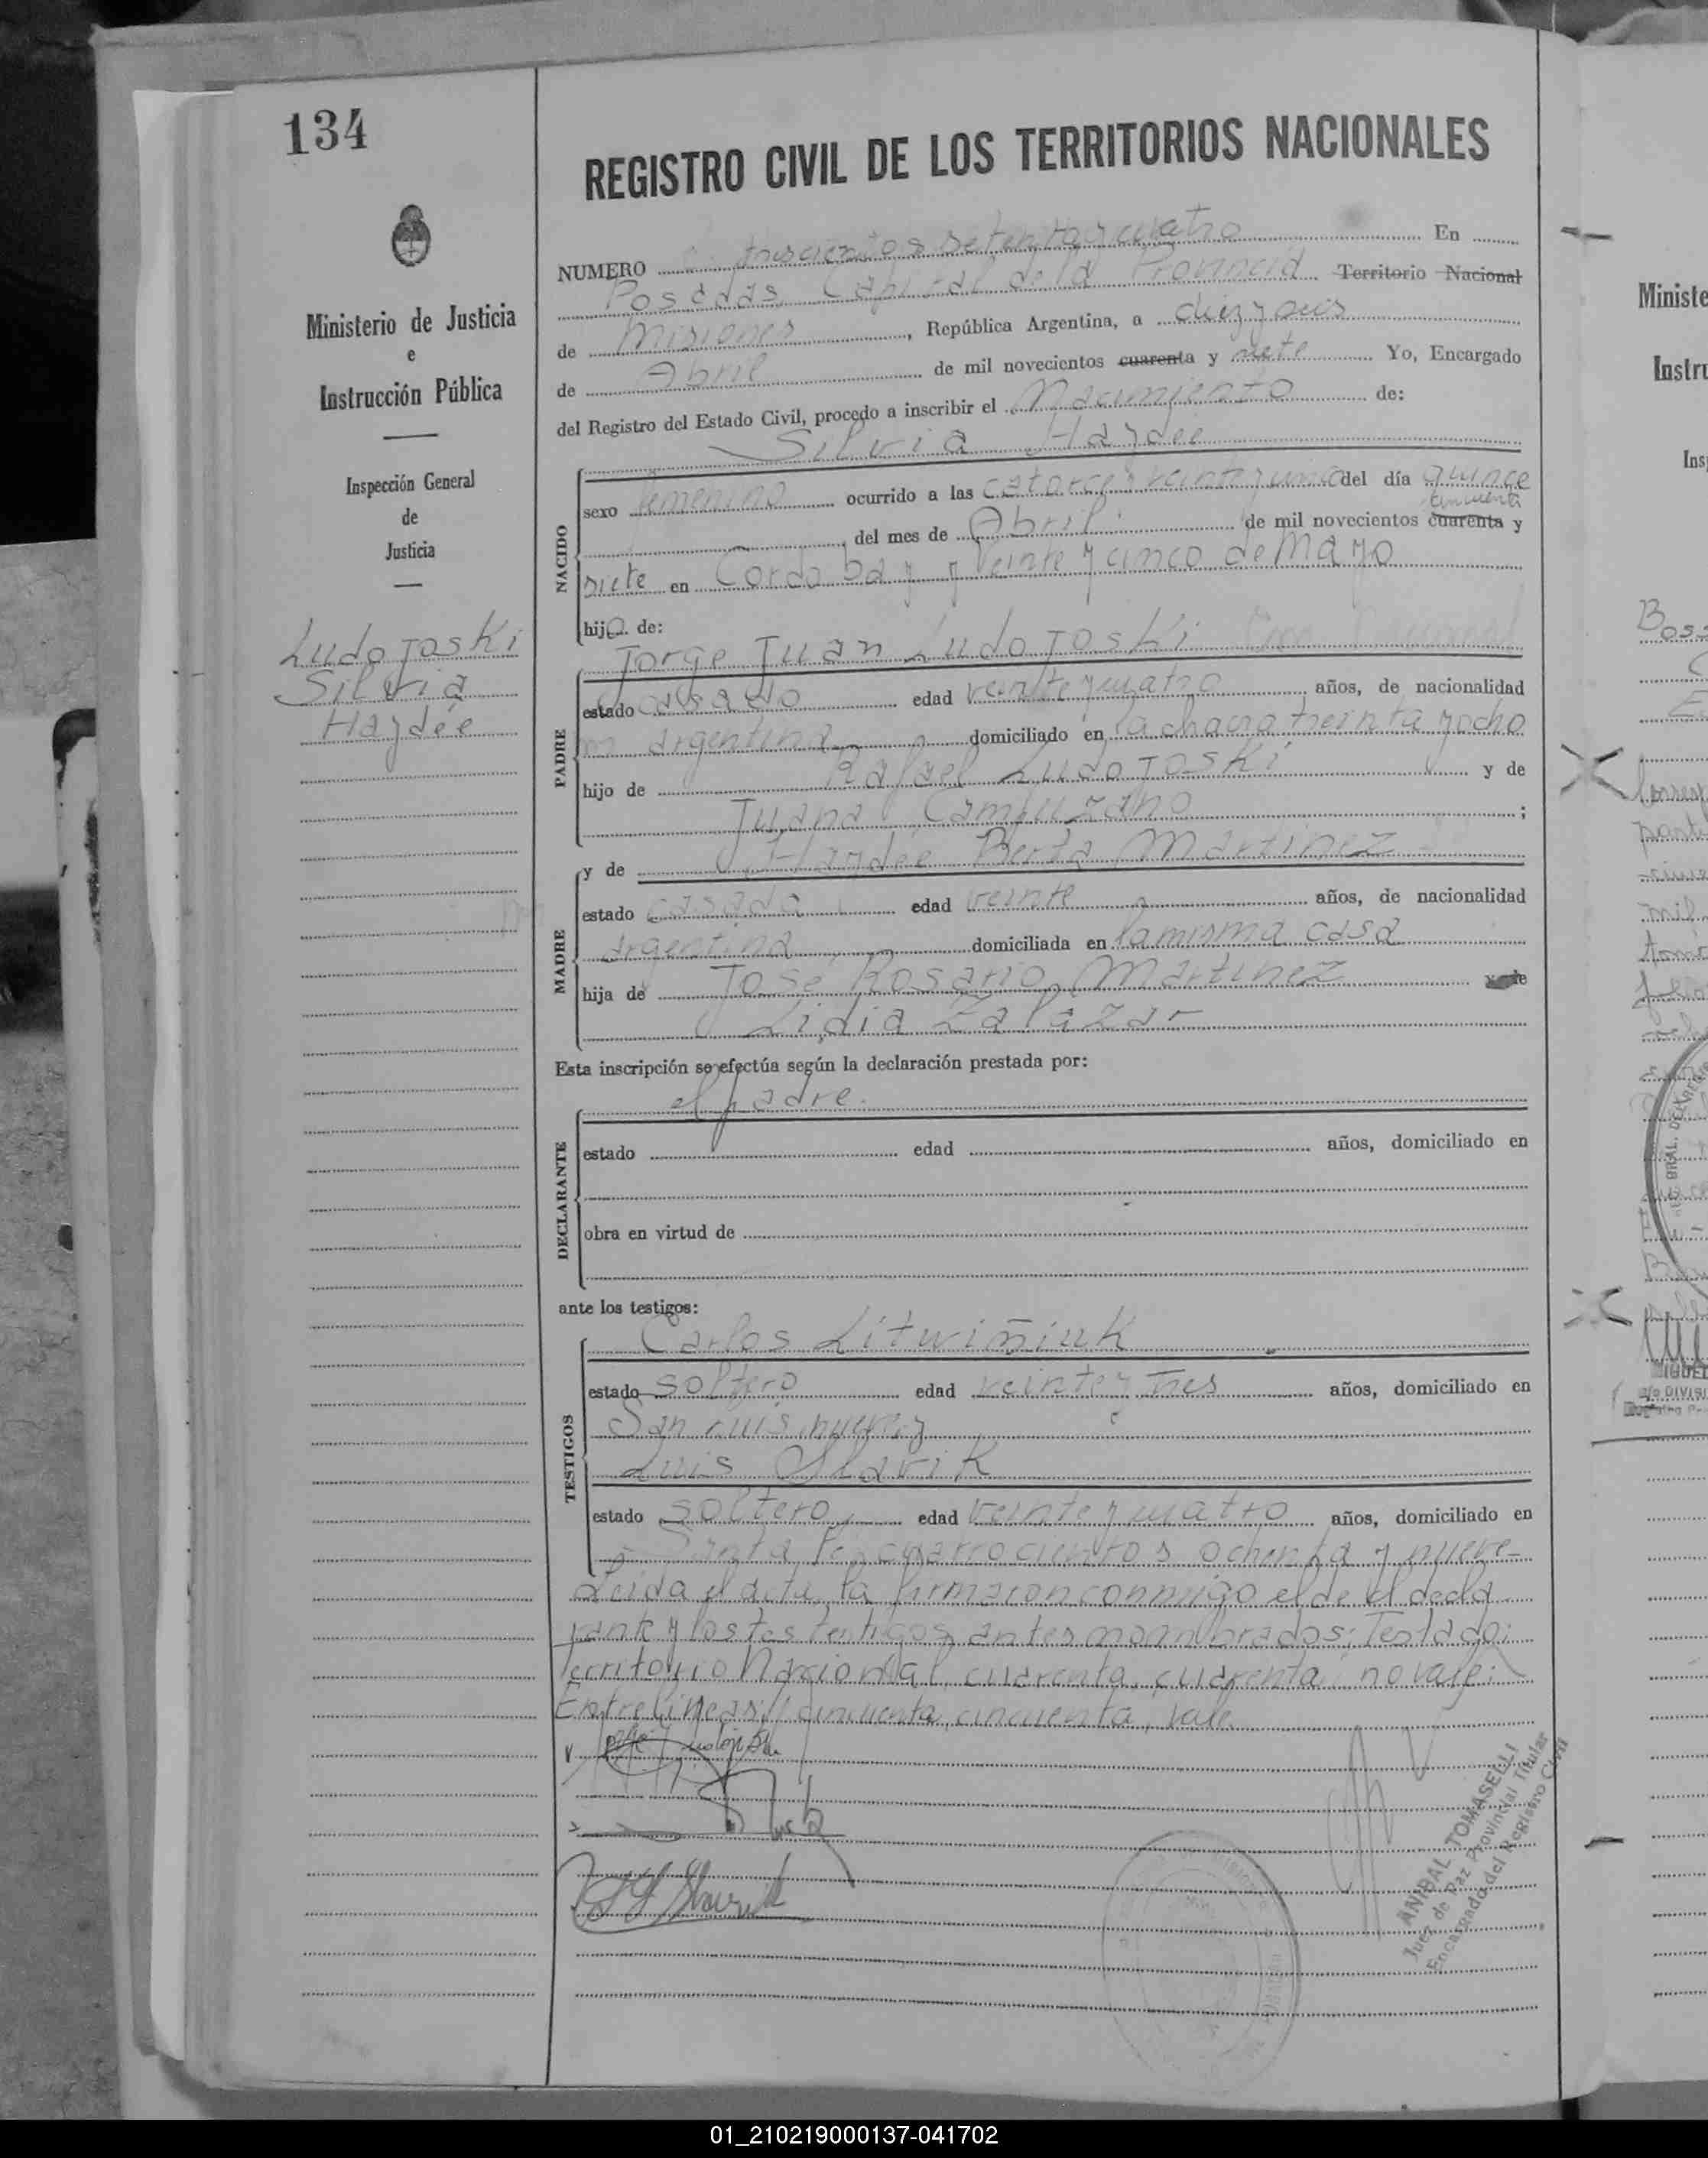 134
REGISTRO CIVIL DE LOS TERRITORIOS NACIONALES
NUMERO trescientos setenta y cuatro En
Posadas, Capital de la Provincia Territorio Nacional
de Misiones, República Argentina, a diez y seis
de Abril de mil novecientos cuarenta y siete Yo, Encargado
del Registro del Estado Civil, procedo a inscribir el Nacimiento de:
Silvia Haydée
Ministerio de Justicia
e
Instrucción Pública
Inspección General
de
Justicia
Ludojoski
Silvia
Haydée
NACIDO
sexo femenino ocurrido a las catorce y veinte y cinco del día quince
cincuenta
del mes de Abril de mil novecientos cuarenta y
siete en Cordoba y veinte y cinco de Mayo
hija de:
Jorge Juan Ludojoski
PADRE
estado casado edad veinte y cuatro años, de nacionalidad
argentina domiciliado en la chacra treinta y ocho
hijo de Rafael Ludojoski y de
Juana Campuzano;
MADRE
y de Haydée Berta Martinez
estado casada edad veinte años, de nacionalidad
argentina domiciliada en la misma casa
hija de José Rosario Martinez y de
Lidia Zalazar
Esta inscripción se efectúa según la declaración prestada por:
el padre.
DECLARANTE
estado edad años, domiciliado en
obra en virtud de
ante los testigos:
Carlos Litwiñiuk
TESTIGOS
estado soltero edad veinte y tres años, domiciliado en
San Luis nueve y
Luis Slavik
estado soltero edad veinte y cuatro años, domiciliado en
Santa Fé cuatrocientos ochenta y nueve-
Leida el acta, la firmaron conmigo el de el decla
rante y los tes testigos antes nombrados: Testado:
Territorio Nacional, cuarenta, cuarenta, no vale:
Entrelineas: cincuenta, cincuenta, vale.
ANIBAL TOMASELLI
Juez de Paz Provincial Titular
Encargado del Registro Civil
01_210219000137-041702